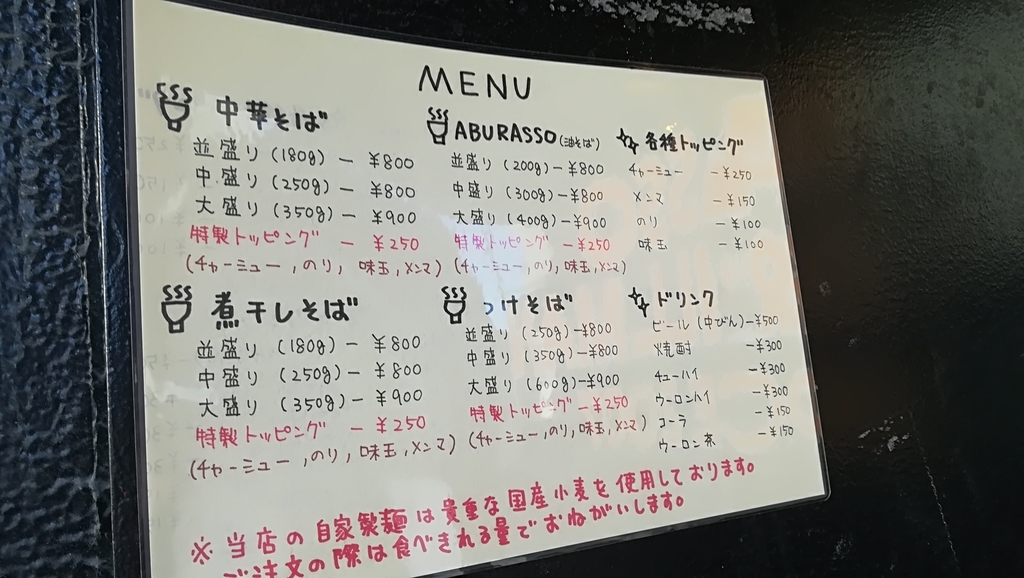 MENU
中華そば
並盛り (180g) ― ¥800
中盛り (250g) ― ¥800
大盛り (350g) ― ¥900
特製トッピング ― ¥250
(チャーミュー,のり,味玉,メンマ)
ABURASSO(油そば)
並盛り (200g) ― ¥800
中盛り (300g) ― ¥800
大盛り (400g) ― ¥900
特製トッピング ― ¥250
(チャーミュー,のり,味玉,メンマ)
各種トッピング
チャーミュー ― ¥250
メンマ ― ¥150
のり ― ¥100
味玉 ― ¥100
煮干しそば
並盛り (180g) ― ¥800
中盛り (250g) ― ¥800
大盛り (350g) ― ¥900
特製トッピング ― ¥250
(チャーミュー,のり,味玉,メンマ)
つけそば
並盛り (250g) ― ¥800
中盛り (350g) ― ¥800
大盛り (600g) ― ¥900
特製トッピング ― ¥250
(チャーミュー,のり,味玉,メンマ)
ドリンク
ビール (中びん) ― ¥500
焼酎 ― ¥300
チューハイ ― ¥300
ウーロンハイ ― ¥300
コーラ ― ¥150
ウーロン茶 ― ¥150
※当店の自家製麺は貴重な国産小麦を使用しております。
ご注文の際は食べきれる量でおねがいします。